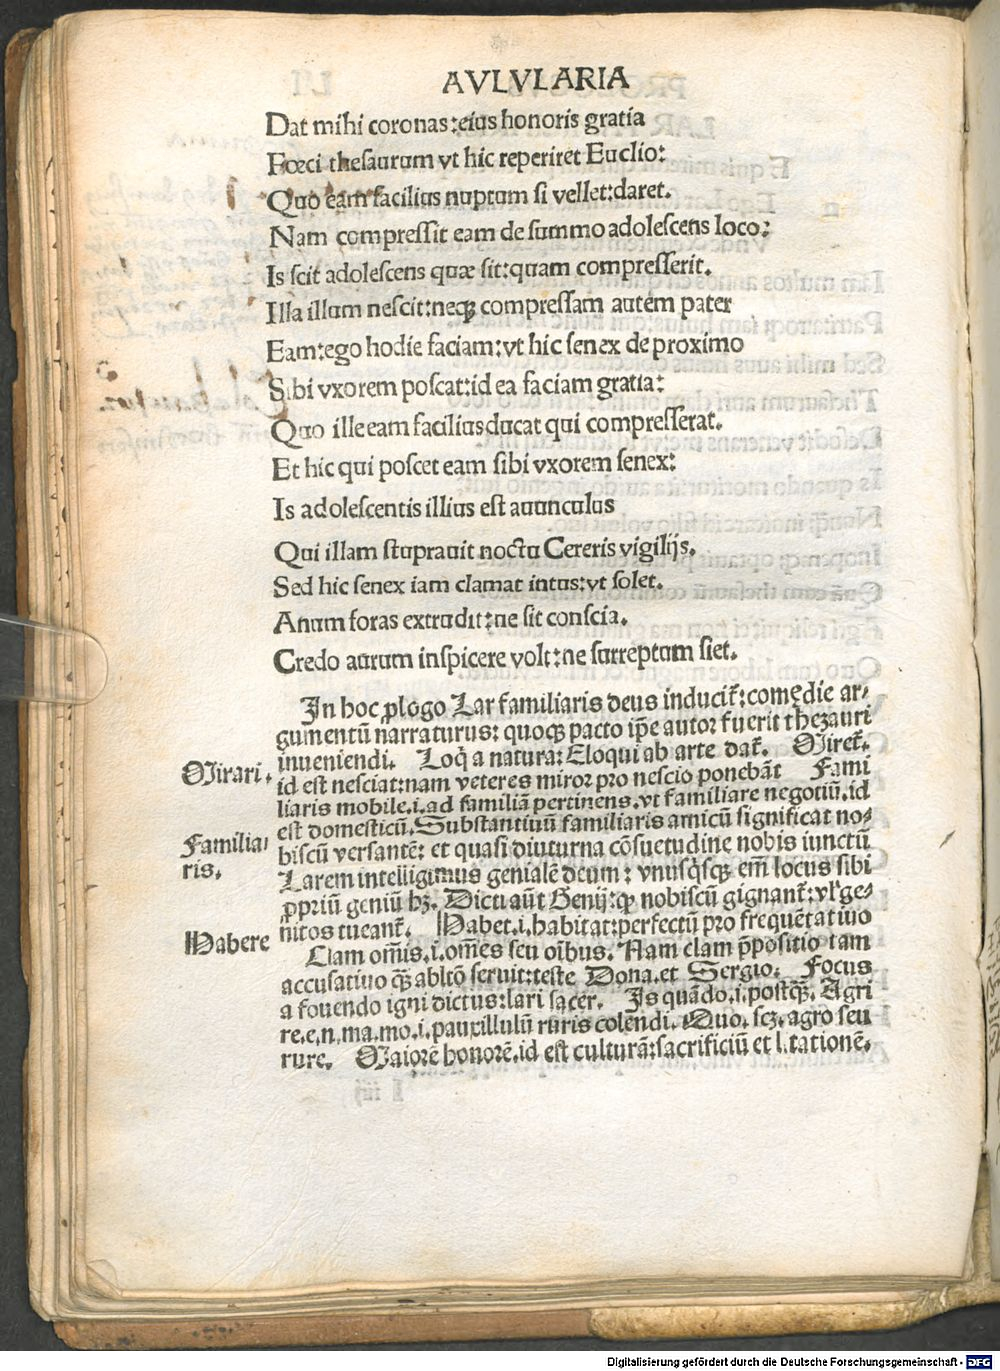 AVLVLARIA
Dat mihi coronas:eius honoris gratia
Fœci thesaurum vt hic reperiret Euclio:
Quo eam facilius nuptum si vellet:daret.
Nam compressit eam de summo adolescens loco:
Is scit adolescens quæ sit:quam compresserit.
Illa illum nescit:neqꝫ compressam autem pater
Eam:ego hodie faciam:vt hic senex de proximo
Sibi vxorem poscat:id ea faciam gratia:
Quo ille eam facilius ducat qui compresserat.
Et hic qui poscet eam sibi vxorem senex:
Is adolescentis illius est auunculus
Qui illam stuprauit noctu Cereris vigilijs.
Sed hic senex iam clamat intus:vt solet.
Anum foras extrudit:ne sit conscia.
Credo aurum inspicere volt:ne surreptum siet.
In hoc ꝓlogo Lar familiaris deus inducit̃:comędie ar-
gumentũ narraturus: quoqꝫ pacto ip̃e autor fuerit thezauri
inueniendi. Loq̃ a natura: Eloqui ab arte dat̃. Miret̃.
Mirari.
id est nesciat:nam veteres miror pro nescio ponebãt Fami
liaris mobile.i.ad familiã pertinens.vt familiare negotiũ.id
est domesticũ. Substantiuũ familiaris amicũ significat no-
Familia-
ris.
biscũ versantẽ: et quasi diuturna cõsuetudine nobis iunctũ
Larem intelligimus genialẽ deum: vnusq̃sqꝫ em̃ locus sibi
ꝓpriũ geniũ hꝫ. Dicti aũt Genij: nobiscũ gignant̃: vl̃ ge-
nitos tueant̃. Habet.i.habitat:perfectũ pro frequẽtatiuo
Habere
Clam om̃is.i.om̃es seu oĩbus. Nam clam p̃positio tam
accusatiuo qꝫ ablt̃o seruit:teste Dona.et Sergio. Focus
a fouendo igni dictus:lari sacer. Is quãdo.i.postqꝫ. Agri
re.e.n.ma.mo.i.pauxillulũ ruris colendi. Quo.scꝫ.agro seu
rure. Maiorẽ honorẽ.id est culturã:sacrificiũ et litationẽ.
Digitalisierung gefördert durch die Deutsche Forschungsgemeinschaft - DFG